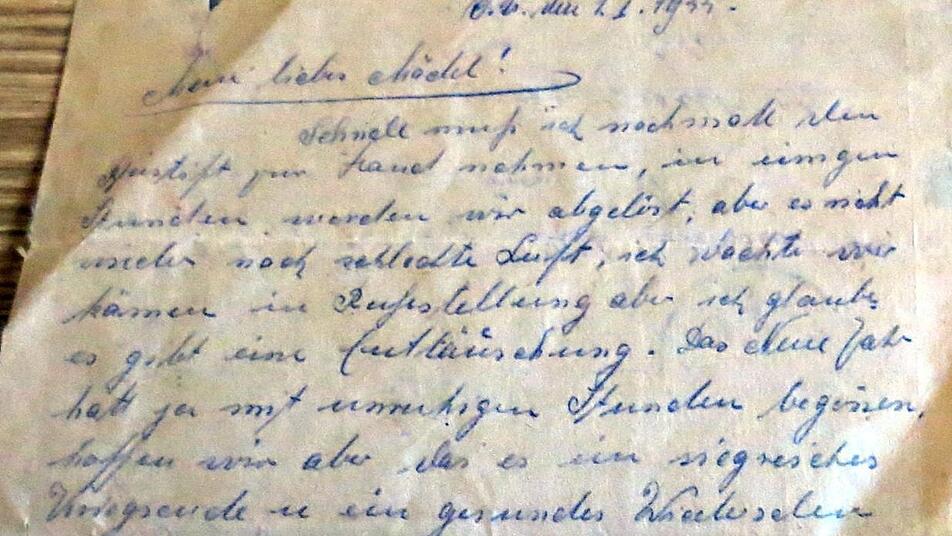 den 1.1.1944.
Mein liebes Mädel!
Schnell muß ich nochmals den
Bleistift zur Hand nehmen, in einigen
Stunden werden wir abgelöst, aber es riecht
wieder nach schlechte Luft, ich dachte wir
kämen in Ruhestellung aber ich glaube
es gibt eine Enttäuschung. Das Neue Jahr
hatt ja mit unruhigen Stunden begonnen,
hoffen wir aber das es ein siegreiches
Kriegsende u ein gesundes Wiedersehen